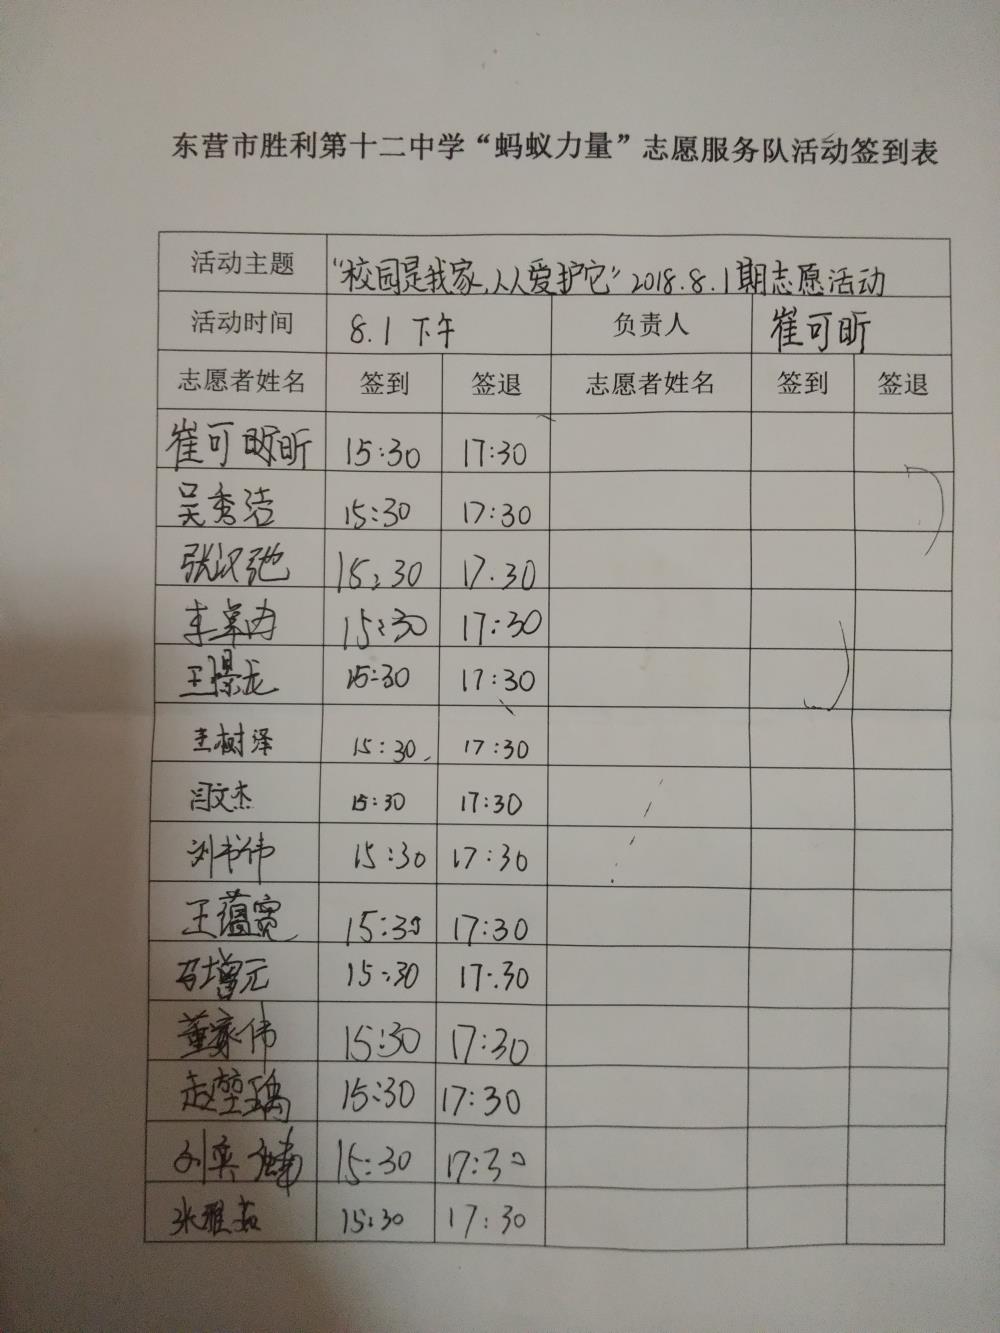 东营市胜利第十二中学“蚂蚁力量”志愿服务队活动签到表
活动主题 “校园是我家,人人爱护它”2018.8.1期志愿活动
活动时间 8.1 下午 负责人 崔可昕
志愿者姓名 签到 签退 志愿者姓名 签到 签退
崔可昕 15:30 17:30
吴秀洁 15:30 17:30
张汉弛 15:30 17.30
李卓冉 15:30 17:30
王璟龙 15:30 17:30
王树泽 15:30 17:30
闫文杰 15:30 17:30
刘书伟 15:30 17:30
王蕴宽 15:30 17:30
石增元 15:30 17:30
董家伟 15:30 17:30
赵堃瑀 15:30 17:30
刘奕 15:30 17:30
张雅茹 15:30 17:30